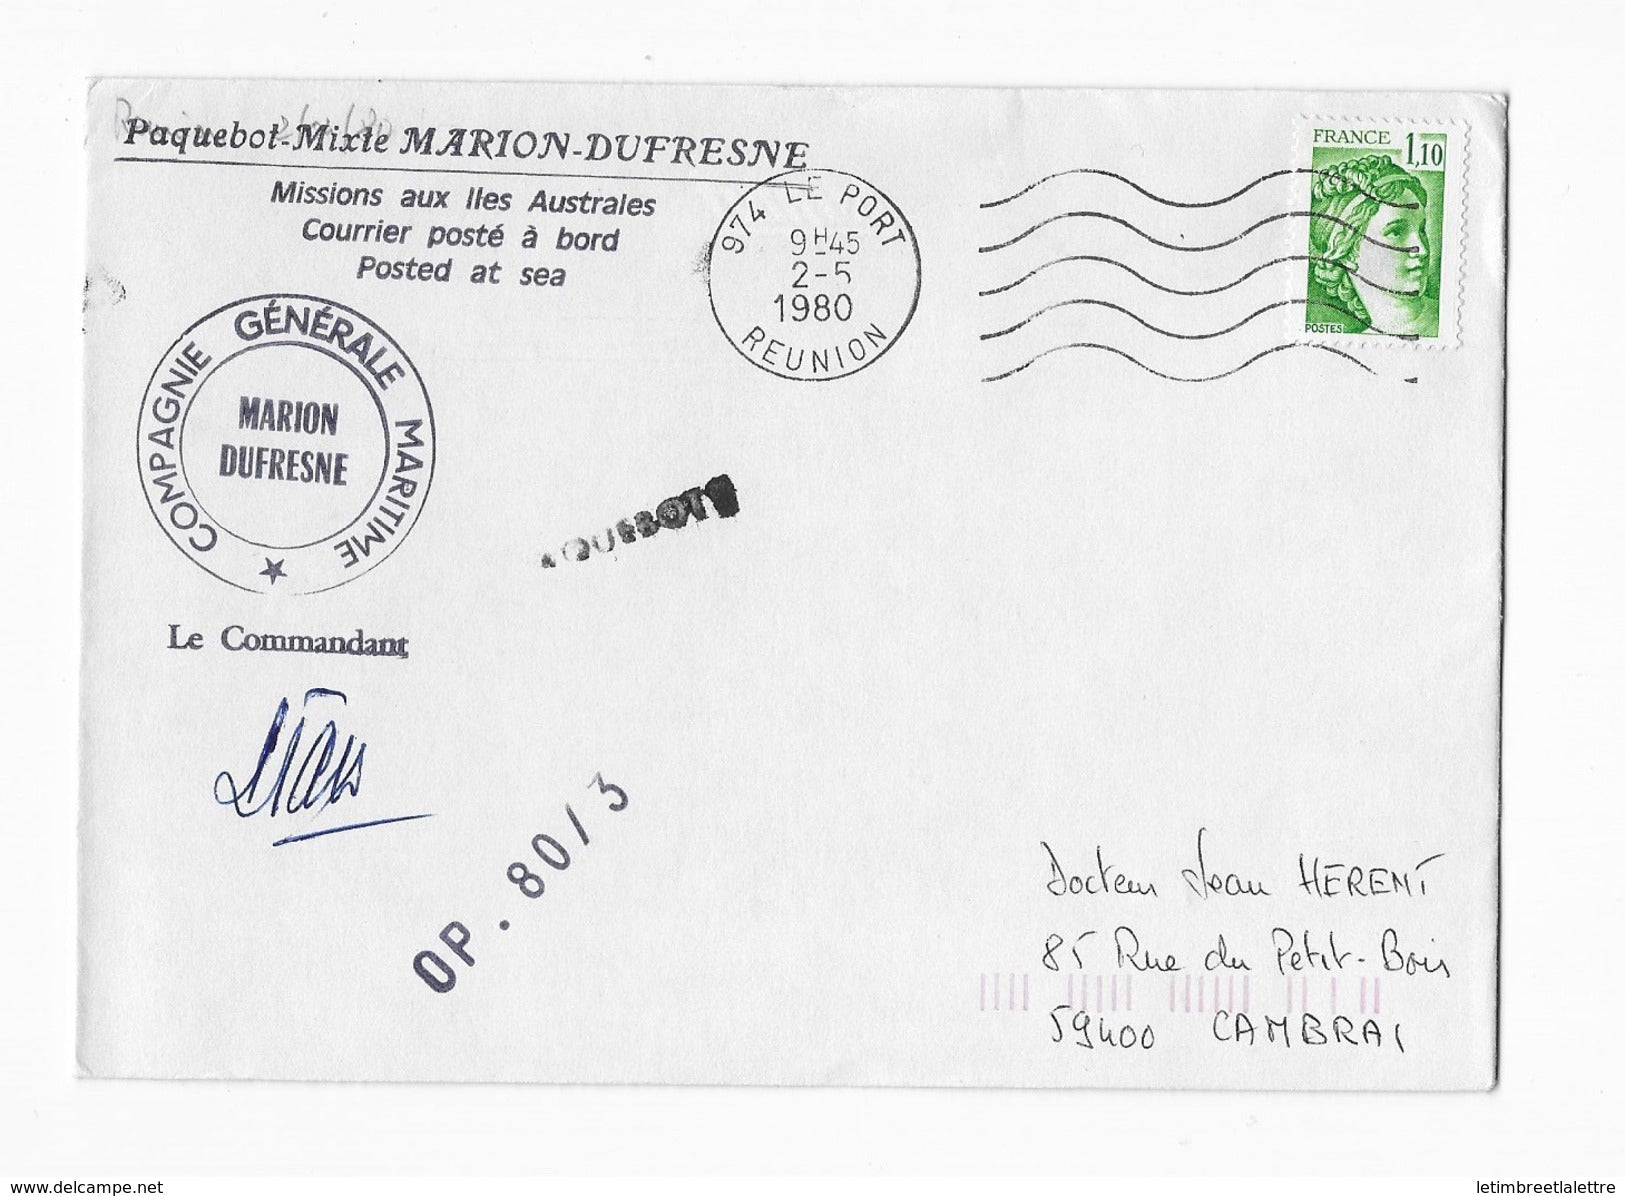 Paquebot-Mixte MARION-DUFRESNE
Missions aux Iles Australes
Courrier posté à bord
Posted at sea
COMPAGNIE GÉNÉRALE MARITIME
MARION
DUFRESNE
Le Commandant
974 LE PORT
9H45
2-5
1980
REUNION
FRANCE
1,10
POSTES
AQUEBOT
OP. 80/3
Docteur Jean HERENT
85 Rue du Petit-Bois
59400 CAMBRAI
www.delcampe.net
letimbreetlalettre